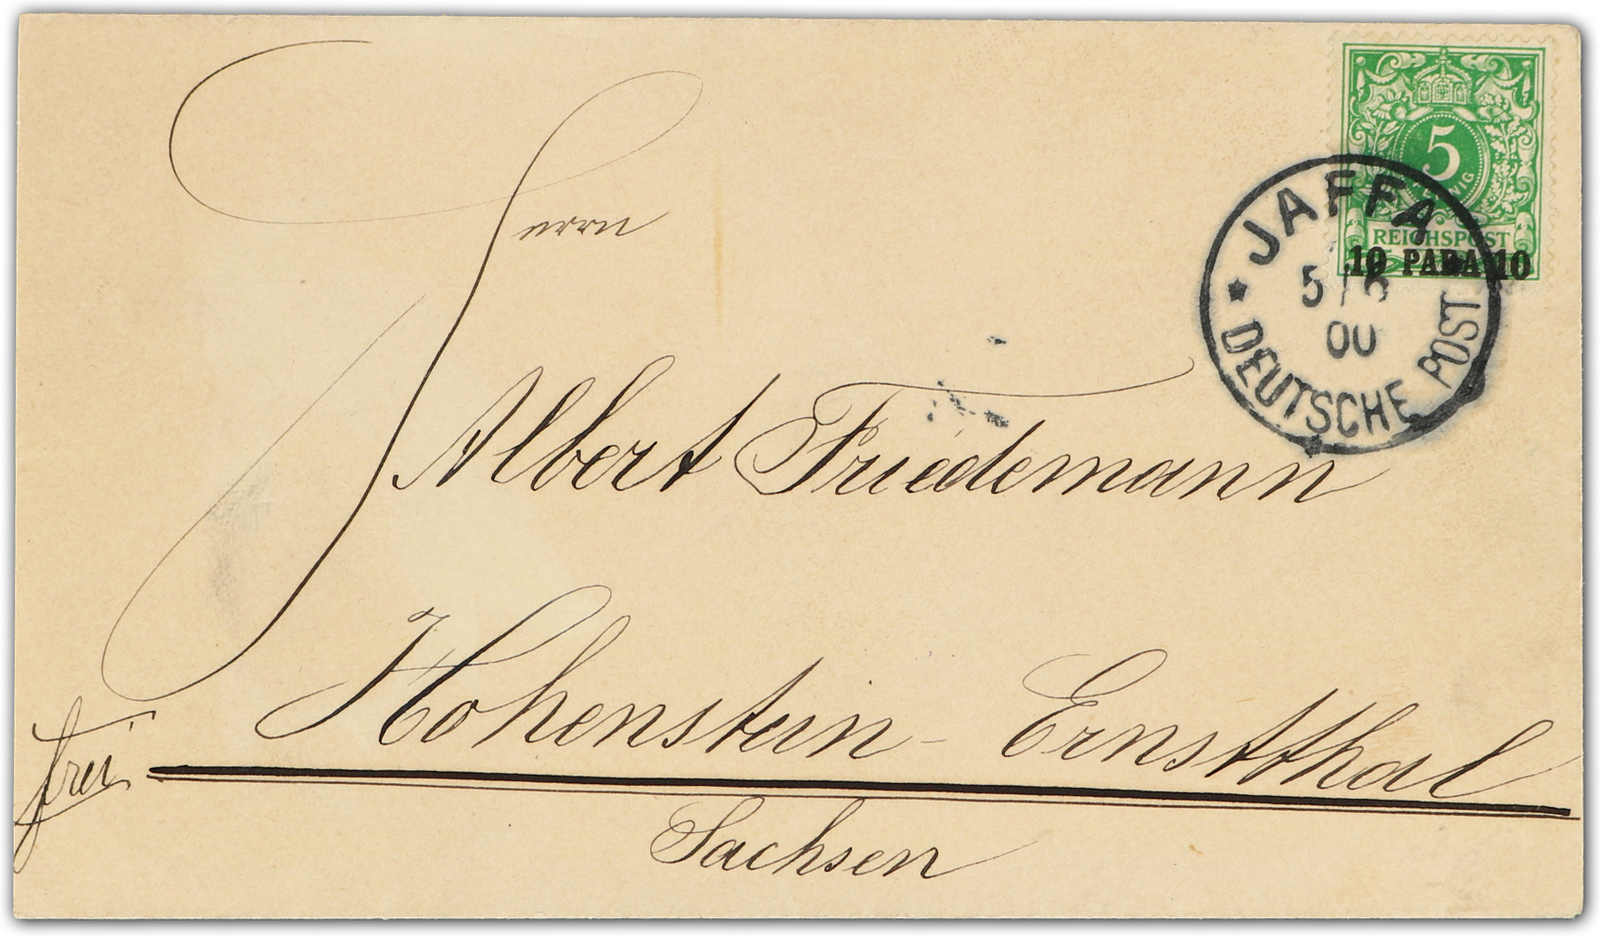 5
REICHSPOST
10 PARA 10
JAFFA
5/6
00
* DEUTSCHE POST
Herrn
Albert Friedemann
Hohenstein-Ernstthal
frei
Sachsen